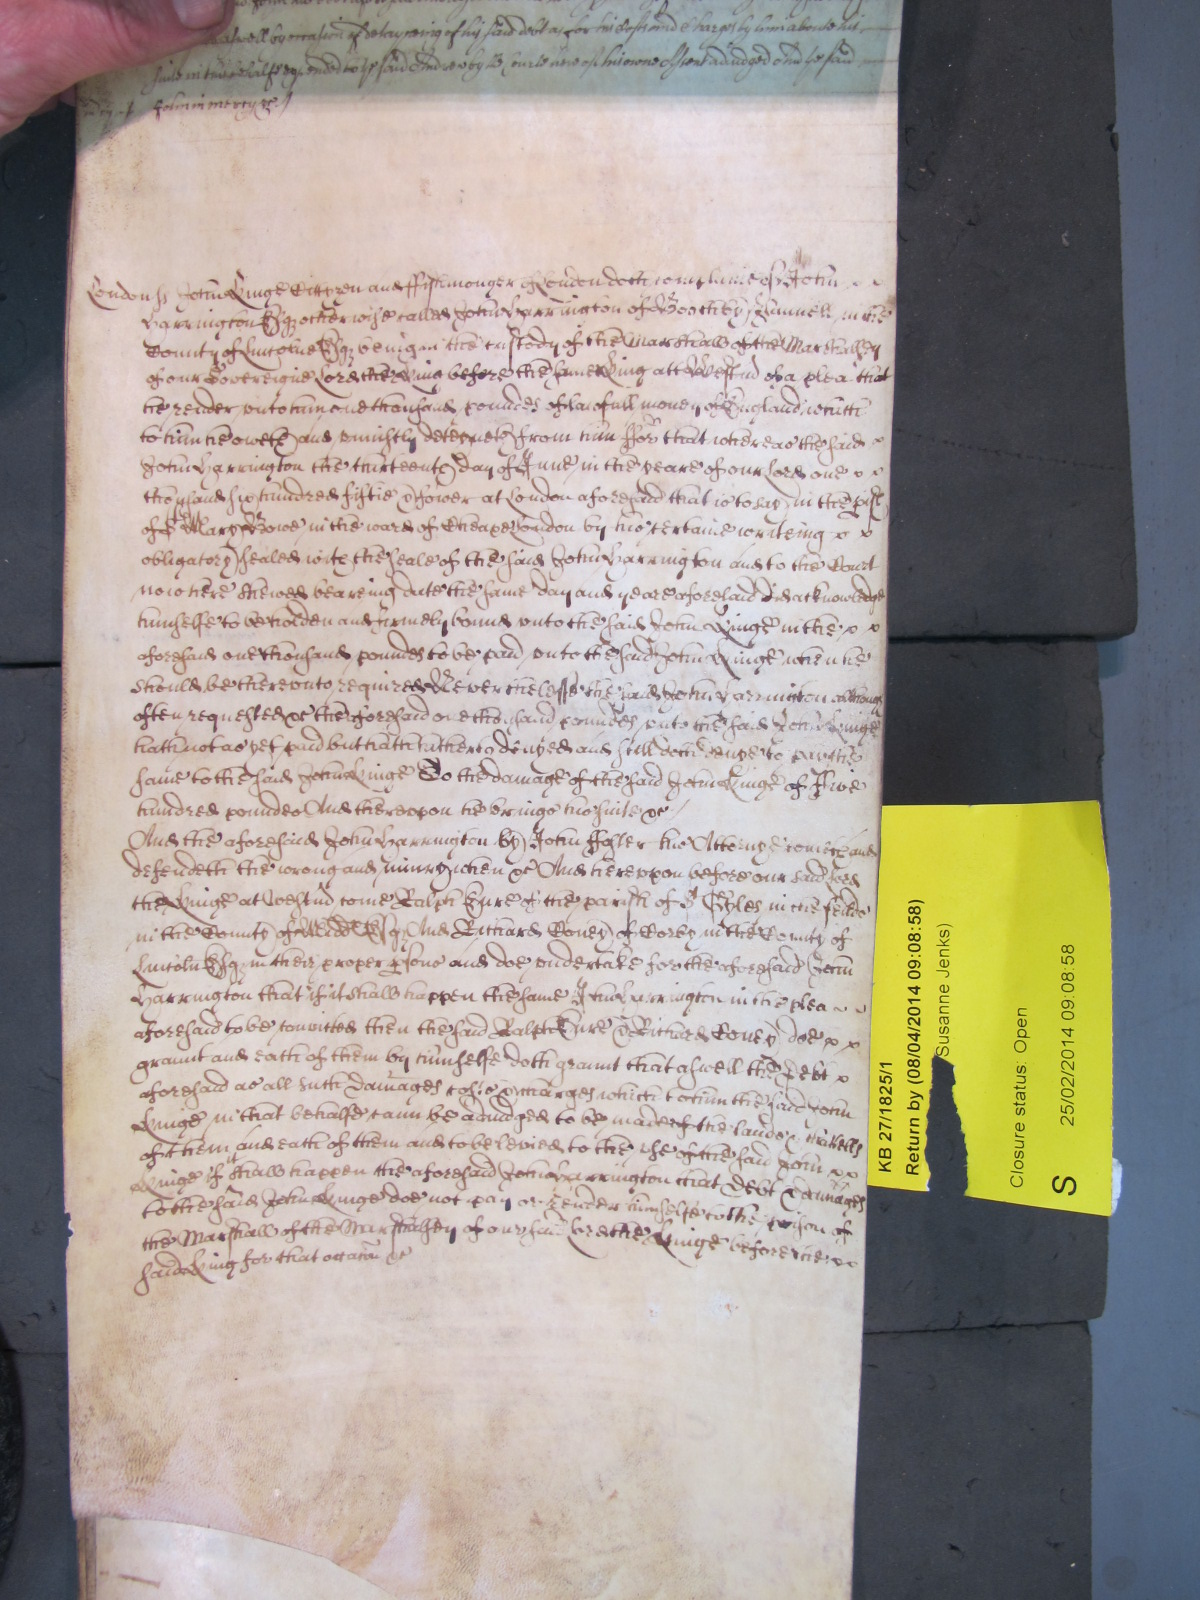 aswell by occasion of detayning of his said debt as for his costs and charges by him about his
suite in this behalfe expended to the said
John in mercy &c
London ss John Kinge Cittizen and ffishmonger of London doth complaine of John
Harrington Esqz otherwise called John Harrington of Boothby Pannell in the
County of Lincolne Esqz being in the custody of the Marshall of the Marshallsey
of our Sovereigne Lord the King before the same King att Westmr of a plea that
he render unto him one thousand poundes of lawfull money of England which
to him he oweth and uniustly deteyneth from him ffor that whereas the said
John Harrington the thirteenth day of June in the yeare of our Lord one
thousand six hundred fiftie & fower at London aforesaid that is to say in the pish
of St Mary Bowe in the ward of Cheape London by his certaine writeing
obligatory sealed with the seale of the said John Harrington and to the Court
now here shewed beareing date the same day and yeare aforesaid did acknowledge
himselfe to be holden and firmely bound unto the said John Kinge in the
aforesaid one thousand poundes to be paid unto the said John Kinge when he
should be thereunto required Neverthelesse the said John Harrington although
often requested &c the aforesaid one thousand poundes unto the said John Kinge
hath not as yet paid but hath hitherto denyed and still doth denye to pay the
same to the said John Kinge To the damage of the said John Kinge of Five
hundred poundes And thereupon he brings his suite &c
And the aforesaid John Harrington by John ffosler his Attorney cometh and
defendeth the wrong and iniury when &c And hereupon before our said Lord
the Kinge at Westmr come Ralph Eure of the parish of St Gyles in the feilds
in the County of Midd Esqz And Richard Coney of Corby in the County of
Lincoln Esqz in their proper psons and doe undertake for the aforesaid John
Harrington that if it shall happen the same John Harrington in the plea
aforesaid to be convicted then the said Ralph Eure & Richard Coney doe
graunt and each of them by himselfe doth graunt that aswell the Debt
aforesaid as all such damages costs & charges which to him the said John
Kinge in that behalfe cann be adiudged to be made of the lands & chattells
of them and each of them and to be levied to the use of the said John
Kinge if it shall happen the aforesaid John Harrington that Debt & damages
to the said John Kinge doe not pay or render himselfe to the prison of
the Marshall of the Marshallsey of our said Lord the Kinge before the
said King for that occacon &c
KB 27/1825/1
Return by (08/04/2014 09:08:58)
Susanne Jenks)
Closure status: Open
25/02/2014 09:08:58
S